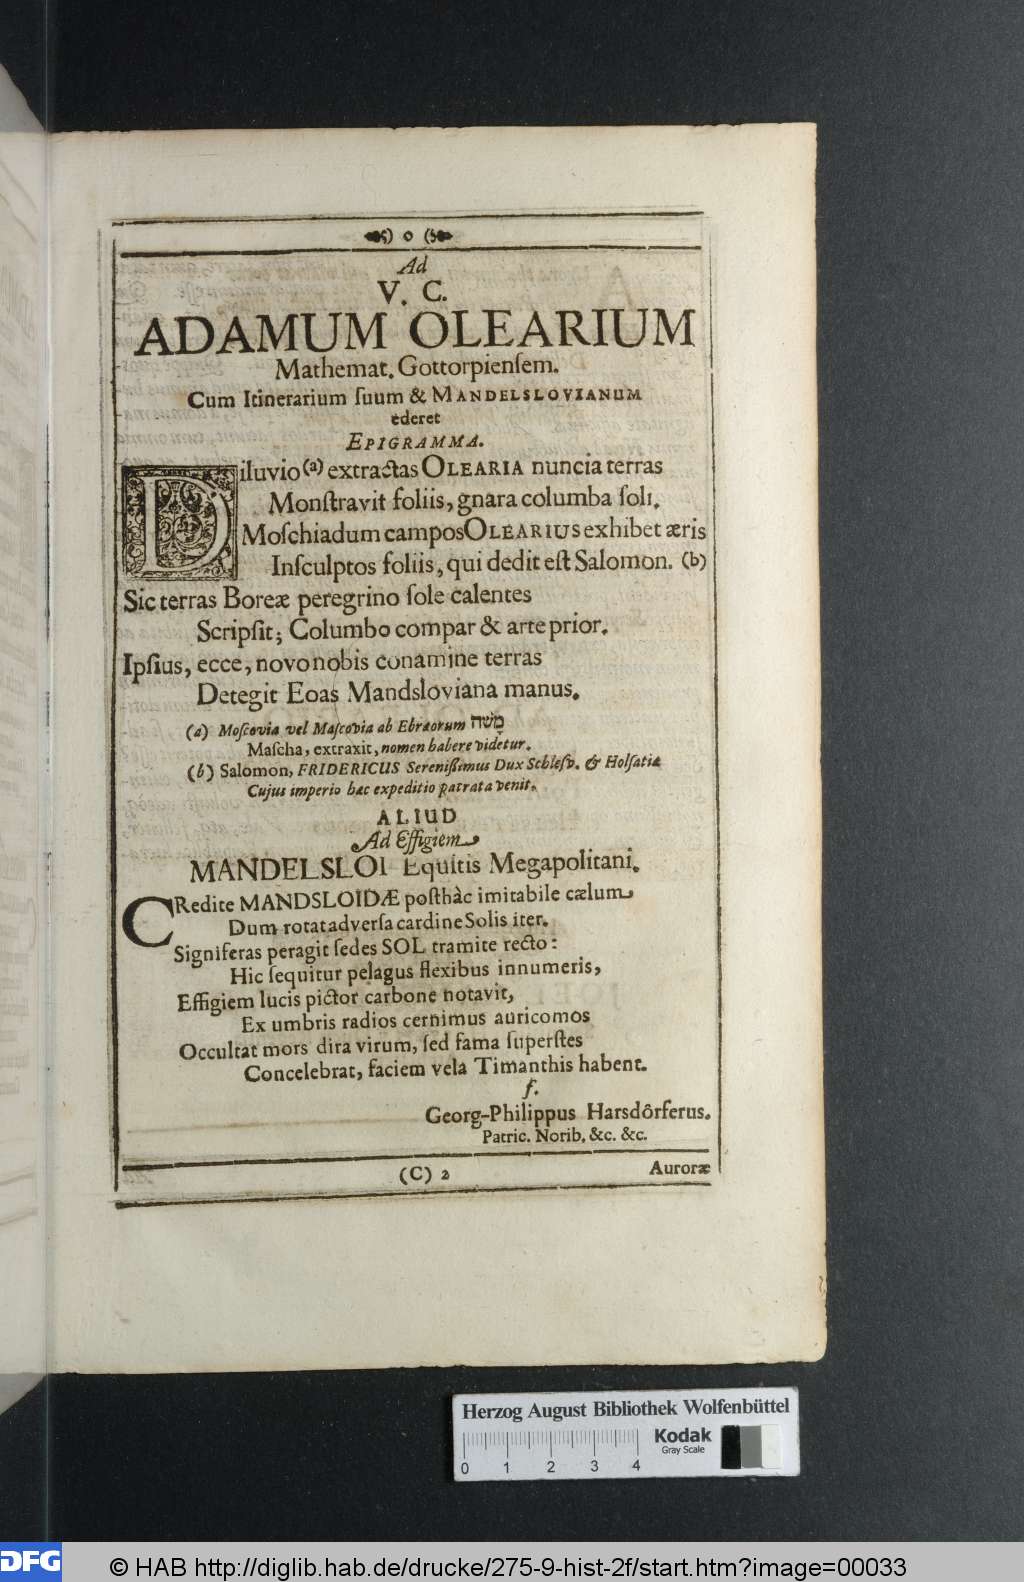 o
Ad
V. C.
ADAMUM OLEARIUM
Mathemat. Gottorpienſem.
Cum Itinerarium ſuum & MANDELSLOVIANUM
ederet
EPIGRAMMA.
Diluvio (a) extractas OLEARIA nuncia terras
Monſtravit foliis, gnara columba ſoli.
Moſchiadum campos OLEARIUS exhibet æris
Inſculptos foliis, qui dedit eſt Salomon. (b)
Sic terras Boreæ peregrino ſole calentes
Scripſit; Columbo compar & arte prior.
Ipſius, ecce, novo nobis conamine terras
Detegit Eoas Mandsloviana manus.
(a) Moſcovia vel Maſcovia ab Ebræorum מָשָׁה
Maſcha, extraxit, nomen habere videtur.
(b) Salomon, FRIDERICUS Sereniſſimus Dux Schleſv. & Holſatiæ
Cujus imperio hæc expeditio patrata venit.
ALIUD
Ad Effigiem
MANDELSLOI Equitis Megapolitani.
CRedite MANDSLOIDÆ poſthàc imitabile cælum
Dum rotat adverſa cardine Solis iter.
Signiferas peragit ſedes SOL tramite recto:
Hic ſequitur pelagus flexibus innumeris,
Effigiem lucis pictor carbone notavit,
Ex umbris radios cernimus auricomos
Occultat mors dira virum, ſed fama ſuperſtes
Concelebrat, faciem vela Timanthis habent.
f.
Georg-Philippus Harsdôrferus.
Patric. Norib. &c. &c.
(C) 2
Auroræ
Herzog August Bibliothek Wolfenbüttel
Kodak
Gray Scale
0 1 2 3 4
DFG
© HAB http://diglib.hab.de/drucke/275-9-hist-2f/start.htm?image=00033